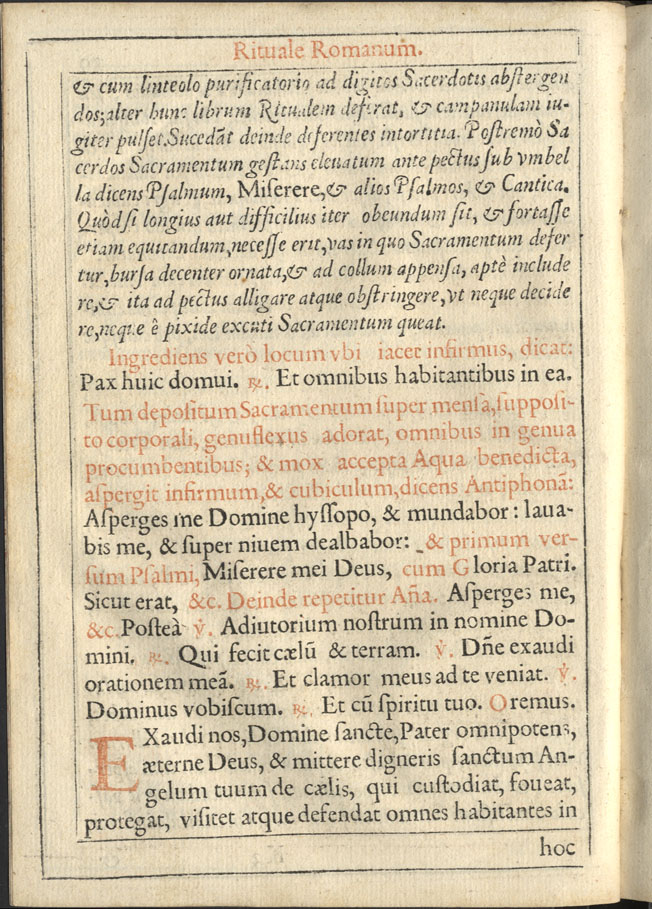 Rituale Romanum.
& cum linteolo purificatorio ad digitos Sacerdotis abſtergen
dos; alter hunc librum Ritualem deferat, & campanulam iu-
giter pulſet. Sucedãt deinde deferentes intortitia. Poſtremò Sa
cerdos Sacramentum geſtans eleuatum ante pectus ſub vmbel
la dicens Pſalmum, Miſerere, & alios Pſalmos, & Cantica.
Quòd ſi longius aut difficilius iter obeundum ſit, & fortaſſe
etiam equitandum, neceſſe erit, vas in quo Sacramentum defer
tur, burſa decenter ornata, & ad collum appenſa, aptè include
re, & ita ad pectus alligare atque obſtringere, vt neque decide
re, neque è pixide excuti Sacramentum queat.
Ingrediens verò locum vbi iacet infirmus, dicat:
Pax huic domui. ℟. Et omnibus habitantibus in ea.
Tum depoſitum Sacramentum ſuper menſa, ſuppoſi-
to corporali, genuflexus adorat, omnibus in genua
procumbentibus; & mox accepta Aqua benedicta,
aſpergit infirmum, & cubiculum, dicens Antiphonã:
Aſperges me Domine hyſſopo, & mundabor: laua-
bis me, & ſuper niuem dealbabor: & primum ver-
ſum Pſalmi, Miſerere mei Deus, cum Gloria Patri.
Sicut erat, &c. Deinde repetitur Aña. Aſperges me,
&c. Poſteà ℣. Adiutorium noſtrum in nomine Do-
mini. ℟. Qui fecit cælũ & terram. ℣. Dñe exaudi
orationem meã. ℟. Et clamor meus ad te veniat. ℣.
Dominus vobiſcum. ℟. Et cũ ſpiritu tuo. Oremus.
EXaudi nos, Domine ſancte, Pater omnipotens,
æterne Deus, & mittere digneris ſanctum An-
gelum tuum de cælis, qui cuſtodiat, foueat,
protegat, viſitet atque defendat omnes habitantes in
hoc